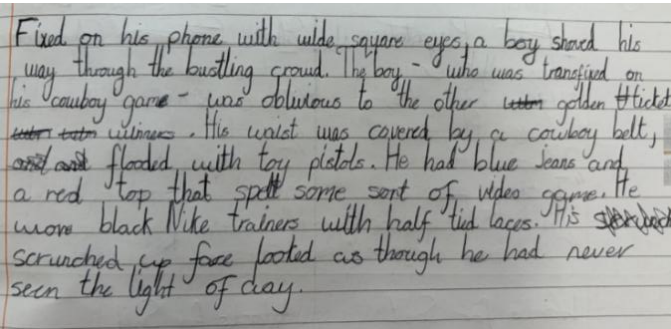 Fixed on his phone with wide square eyes, a boy shoved his
way through the bustling crowd. The boy - who was transfixed on
his cowboy game - was oblivious to the other golden ticket
winners. His waist was covered by a cowboy belt,
flooded with toy pistols. He had blue jeans and
a red top that spelt some sort of video game. He
wore black Nike trainers with half tied laces. His
scrunched up face looked as though he had never
seen the light of day.